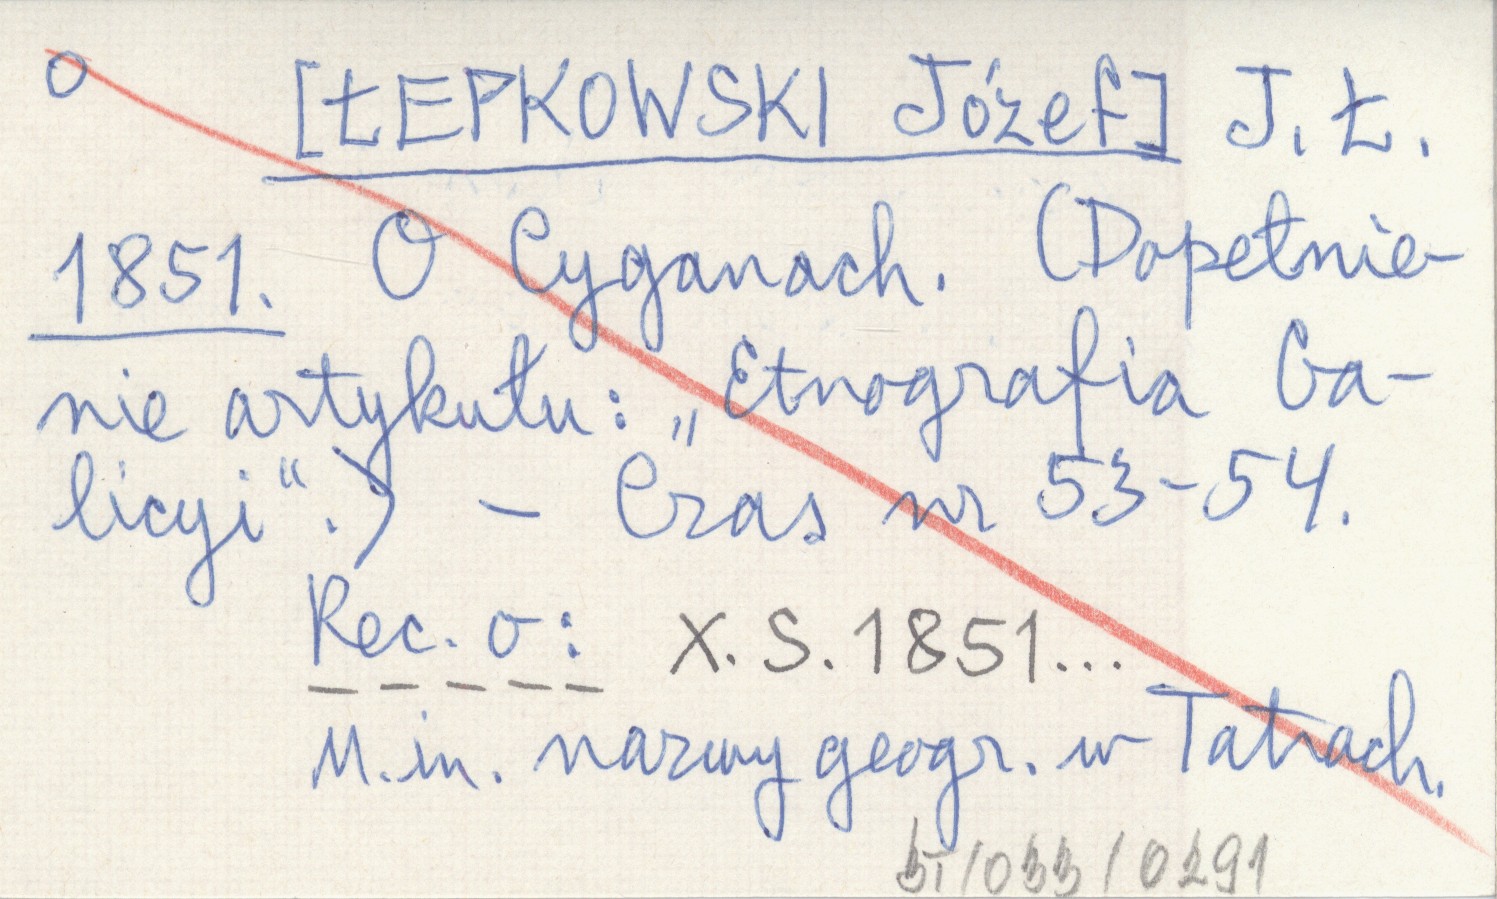 o [ŁEPKOWSKI Józef] J. Ł.
1851. O Cyganach. (Dopełnie-
nie artykułu: „Etnografia Ga-
licyi“.) – Czas nr 53-54.
Rec. o: X. S. 1851...
M.in. nazwy geogr. w Tatrach.
/033/0291